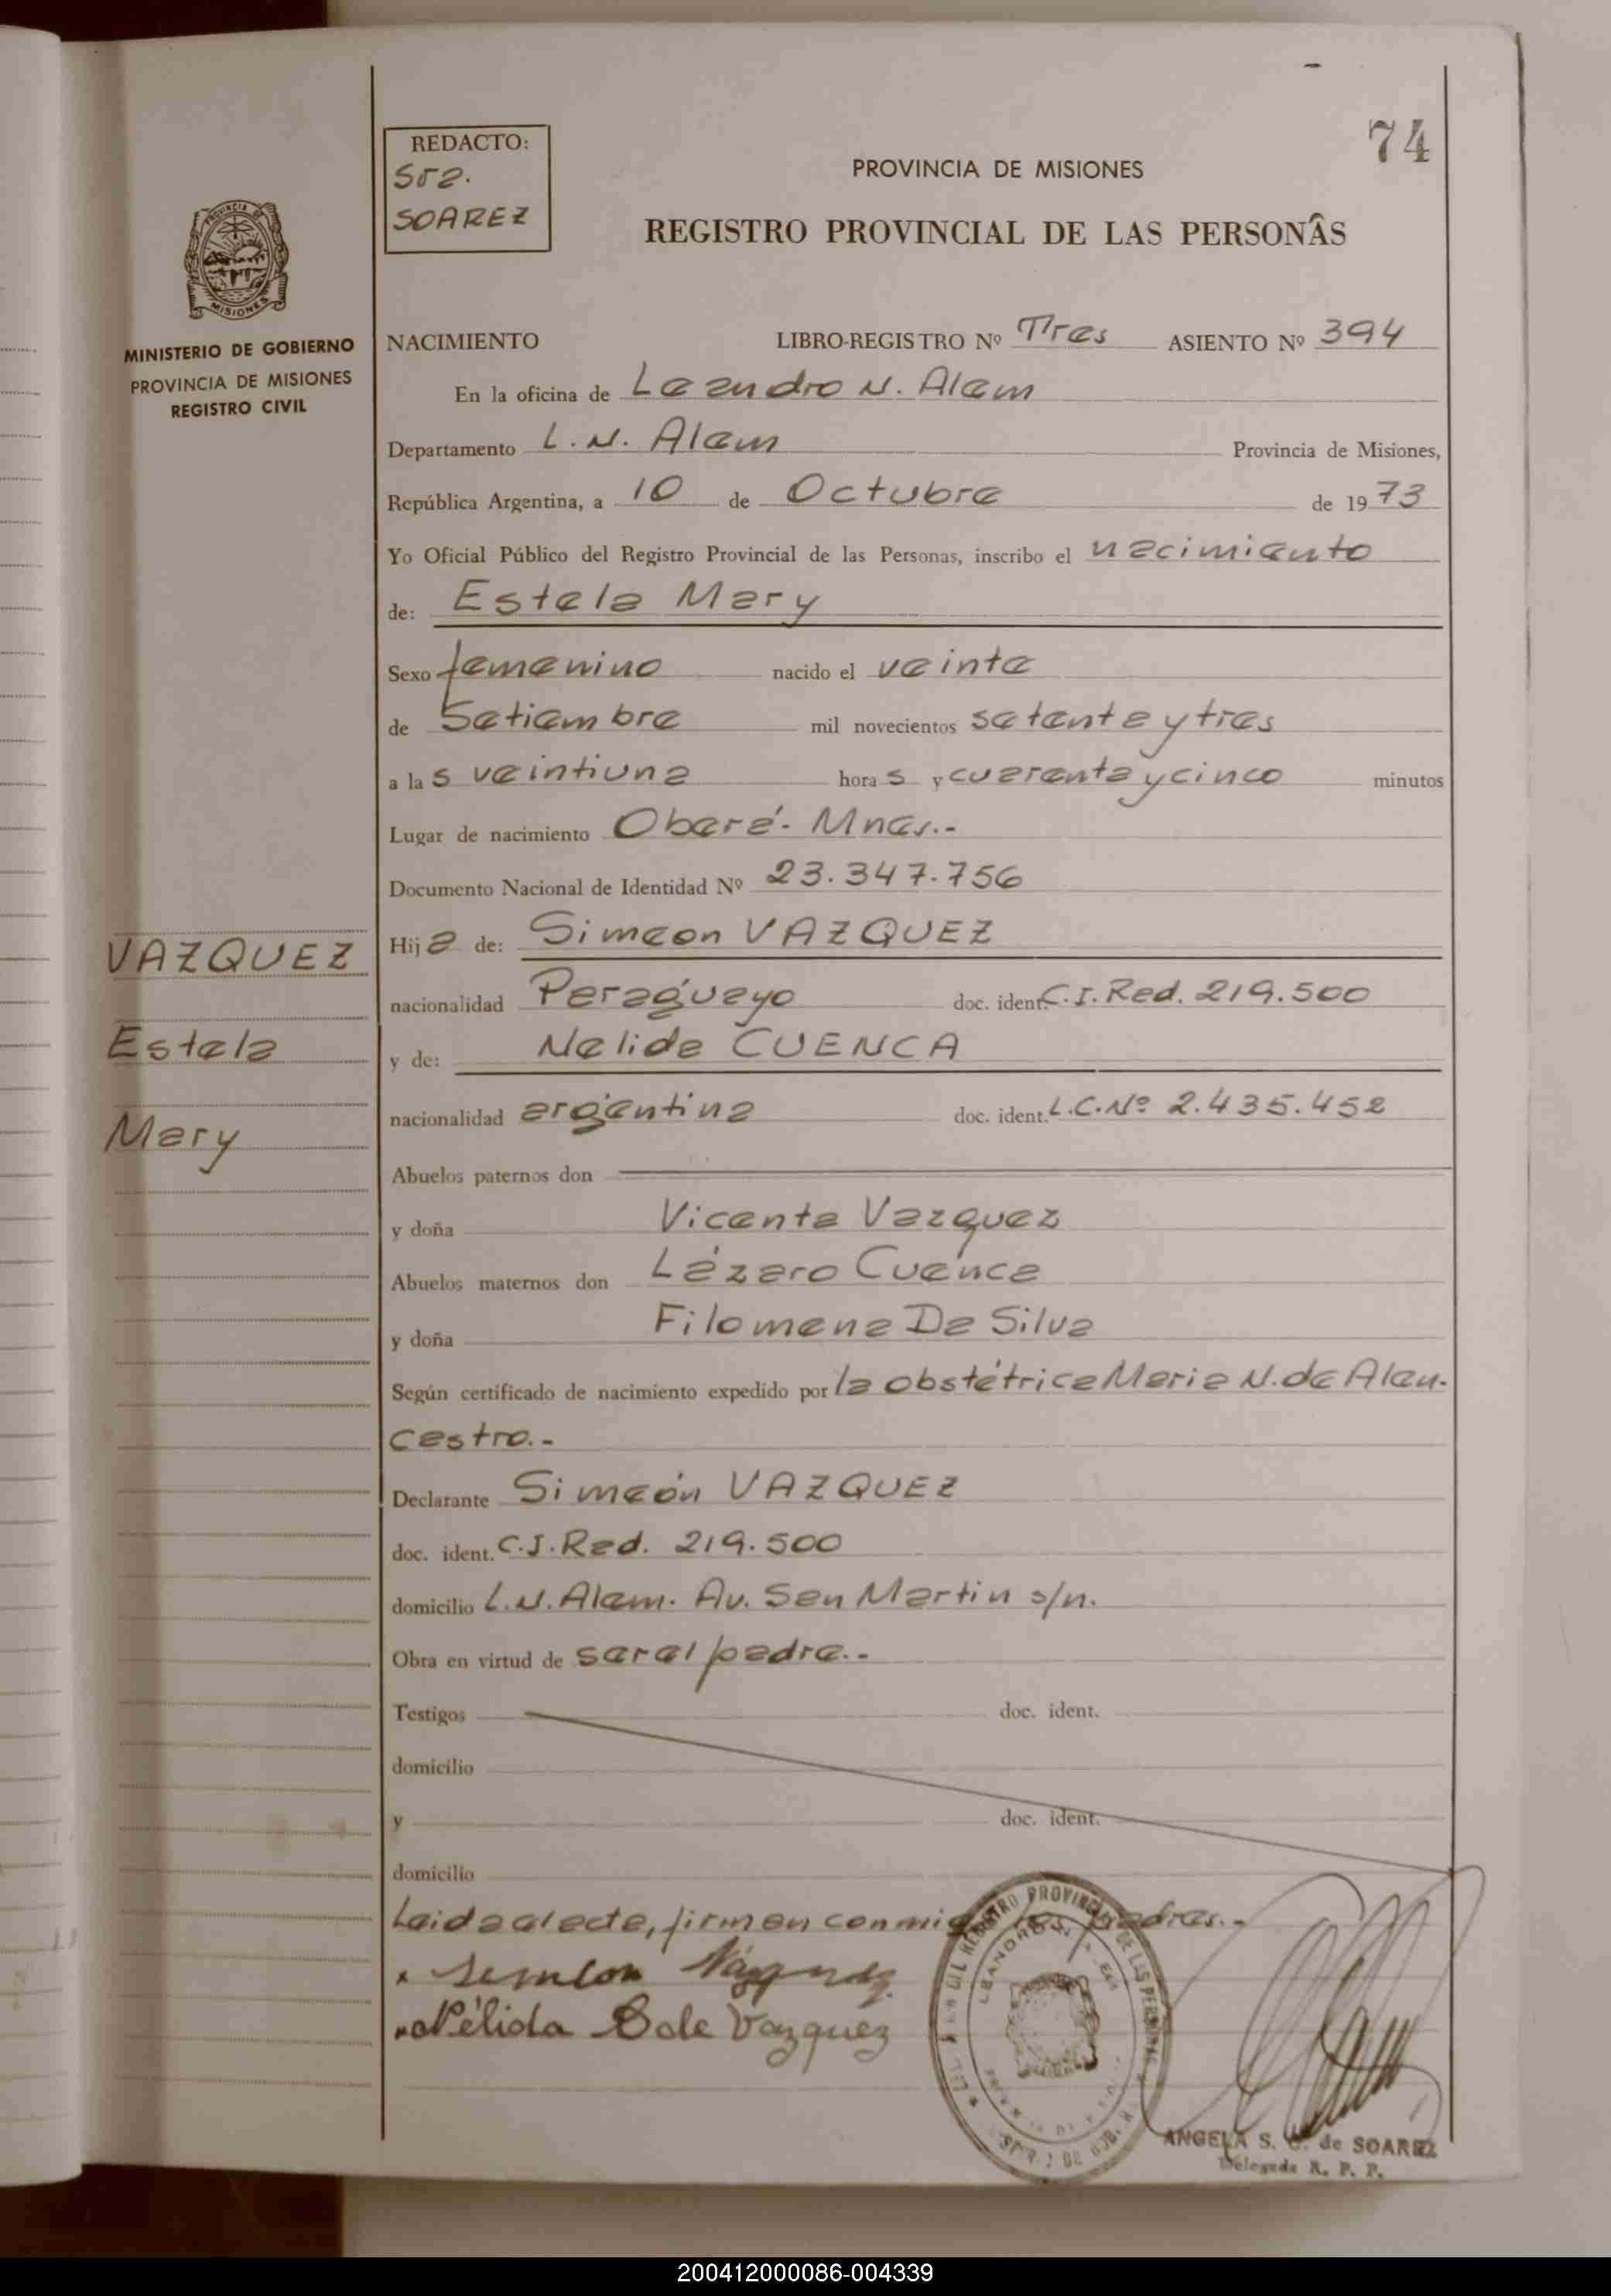 74
REDACTO:
Sra.
SOAREZ
PROVINCIA DE MISIONES
REGISTRO PROVINCIAL DE LAS PERSONAS
PROVINCIA DE
MISIONES
MINISTERIO DE GOBIERNO
PROVINCIA DE MISIONES
REGISTRO CIVIL
NACIMIENTO LIBRO-REGISTRO Nº Tres ASIENTO Nº 394
En la oficina de Leandro N. Alem
Departamento L. N. Alem Provincia de Misiones,
República Argentina, a 10 de Octubre de 1973
Yo Oficial Público del Registro Provincial de las Personas, inscribo el nacimiento
de: Estela Mary
Sexo femenino nacido el veinte
de Setiembre mil novecientos setenta y tres
a las veintiuna horas y cuarenta y cinco minutos
Lugar de nacimiento Oberá. Mnes.-
Documento Nacional de Identidad Nº 23.347.756
VAZQUEZ
Estela
Mary
Hija de: Simeon VAZQUEZ
nacionalidad Paraguayo doc. ident. C.I. Rad. 219.500
y de: Nelida CUENCA
nacionalidad argentina doc. ident. L.C.Nº 2.435.452
Abuelos paternos don
y doña Vicenta Vazquez
Abuelos maternos don Lázaro Cuenca
y doña Filomena Da Silva
Según certificado de nacimiento expedido por la obstétrica Maria N. de Alen-
castro.-
Declarante Simeón VAZQUEZ
doc. ident. C.I. Rad. 219.500
domicilio L.N. Alem. Av. San Martin s/n.
Obra en virtud de ser el padre.-
Testigos doc. ident.
domicilio
y doc. ident.
domicilio
Leida el acta, firman conmigo los padres.-
x Simeon Vázquez
Nélida de Vazquez
ANGELA S. de SOAREZ
Delegada R. P. P.
200412000086-004339